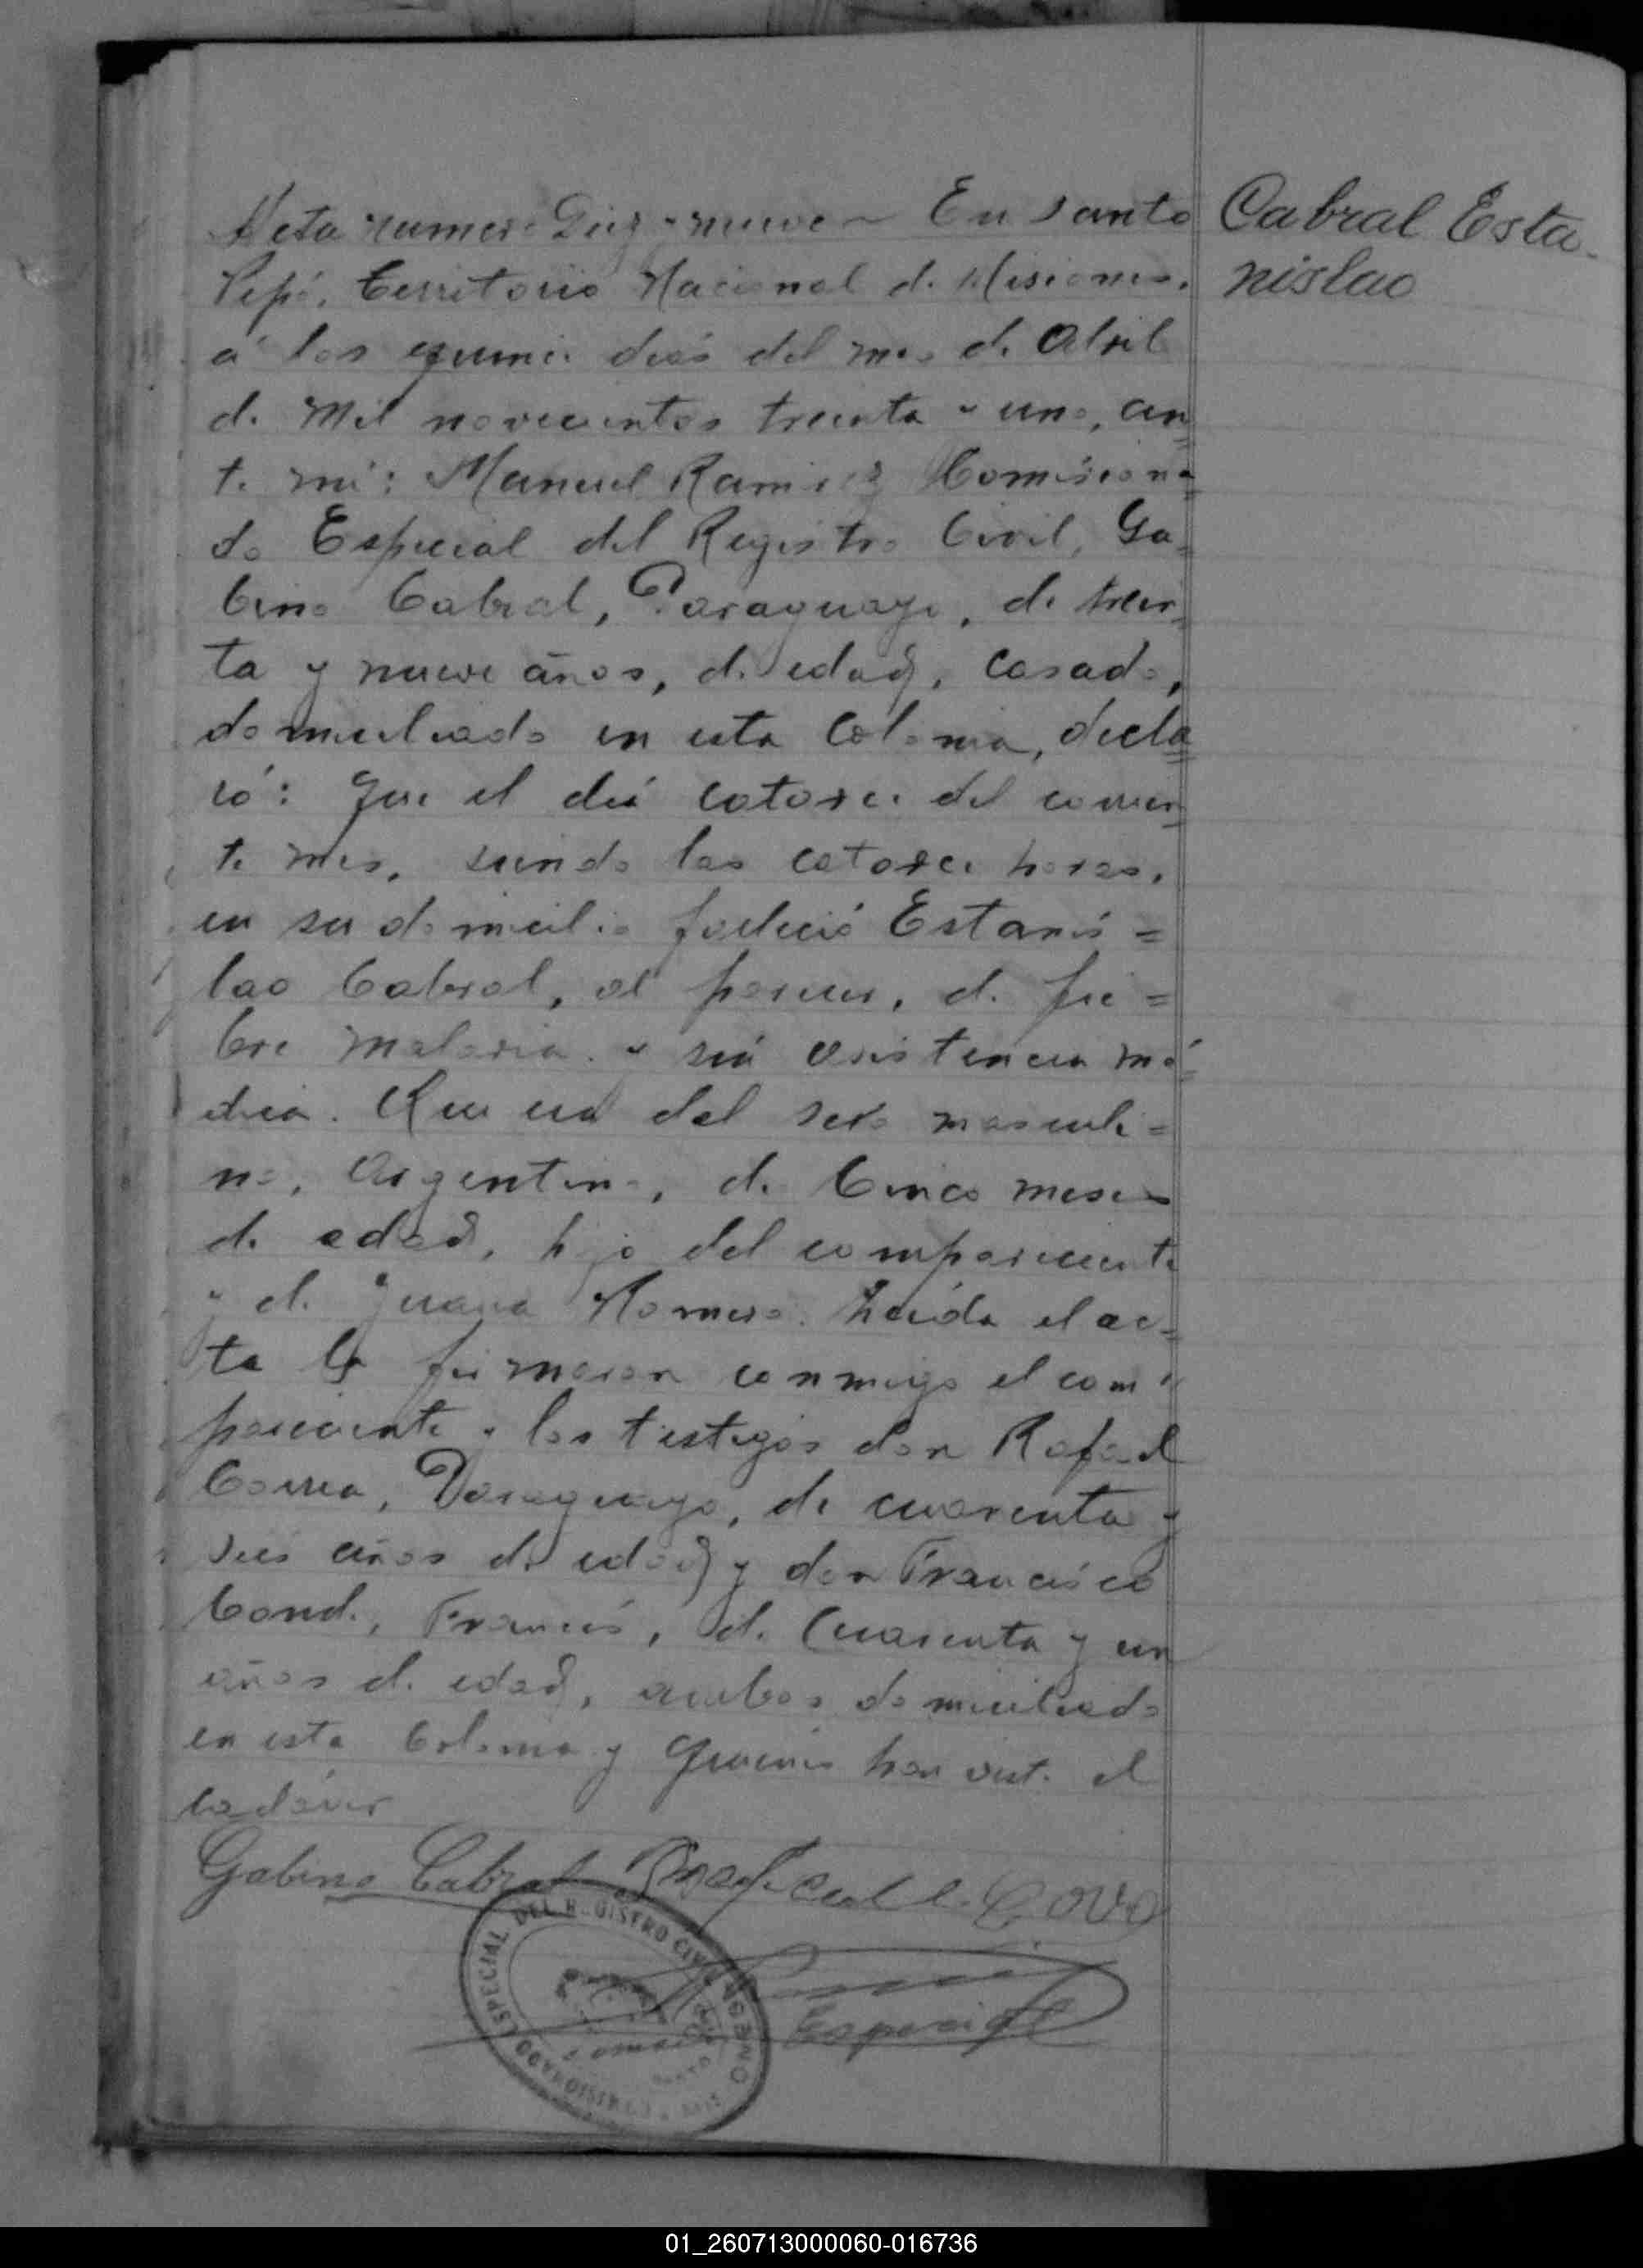 Acta numero Diez y nueve ~ En Santo
Pipó, Territorio Nacional de Misiones,
á los quince dias del mes de Abril
de Mil novecientos treinta y uno, an=
te mi: Manuel Ramirez Comisiona=
do Especial del Registro Civil, Ga=
bino Cabral, Paraguayo, de trein=
ta y nueve años, de edad, casado,
domiciliado en esta Colonia, decla=
ró: Que el dia catorce del corrien=
te mes, siendo las catorce horas,
en su domicilio falleció Estanis=
lao Cabral, al parecer, de fie=
bre malaria y sin asistencia mé=
dica. Que era del sexo masculi=
no, Argentino, de Cinco meses
de edad, hijo del compareciente
y de Juana Romero. Leida el ac=
ta la firmaron conmigo el com=
pareciente y los testigos don Rafael
Correa, Paraguayo, de cuarenta y
seis años de edad y don Francisco
Cond., Francés, de Cuarenta y un
años de edad, ambos domiciliado
en esta Colonia y quienes han visto el
cadáver
Gabino Cabral
Especial
ESPECIAL DEL REGISTRO CIVIL
COMISIONADO
Cabral Esta-
nislao
01_260713000060-016736